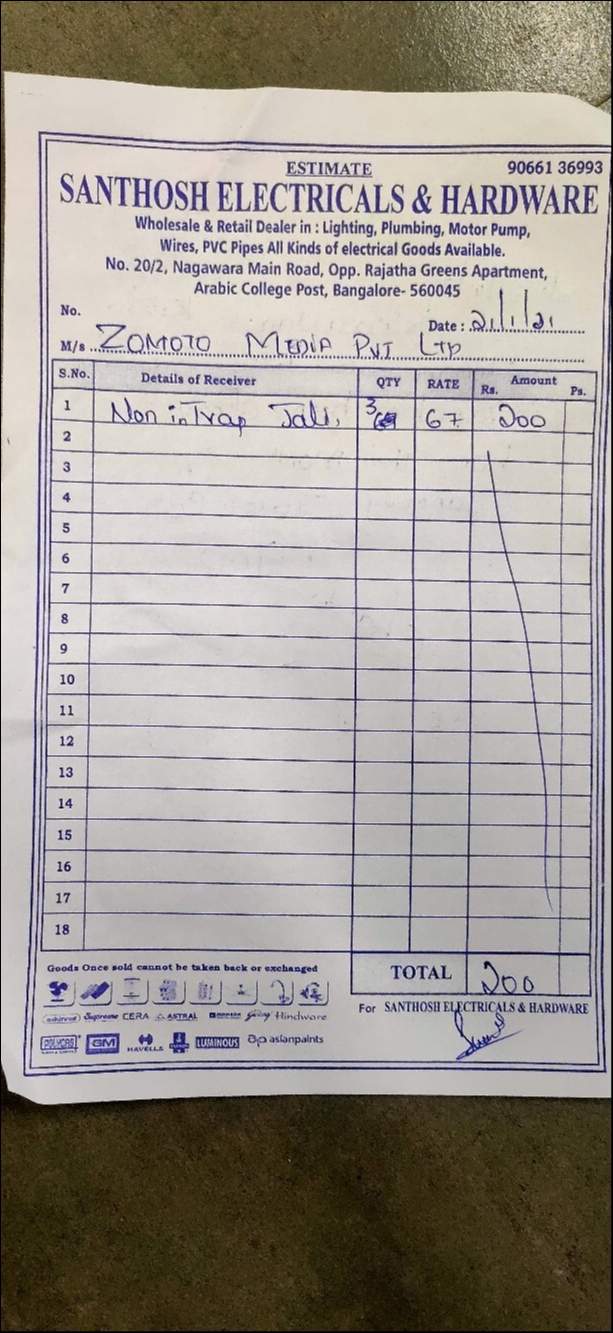 ESTIMATE 90661 36993
SANTHOSH ELECTRICALS & HARDWARE
Wholesale & Retail Dealer in : Lighting, Plumbing, Motor Pump,
Wires, PVC Pipes All Kinds of electrical Goods Available.
No. 20/2, Nagawara Main Road, Opp. Rajatha Greens Apartment,
Arabic College Post, Bangalore- 560045
No.
Date : 21/1/21
M/s ZOMOTO MEDIA PVT LTD
S.No. Details of Receiver QTY RATE Amount
Rs. Ps.
1 Non in Trap Jali, 3 67 200
2
3
4
5
6
7
8
9
10
11
12
13
14
15
16
17
18
Goods Once sold cannot be taken back or exchanged
TOTAL 200
For SANTHOSH ELECTRICALS & HARDWARE
ashirvad Supreme CERA ASTRAL Hindware
POLYCAB GM HAVELLS LUMINOUS ap asianpaints